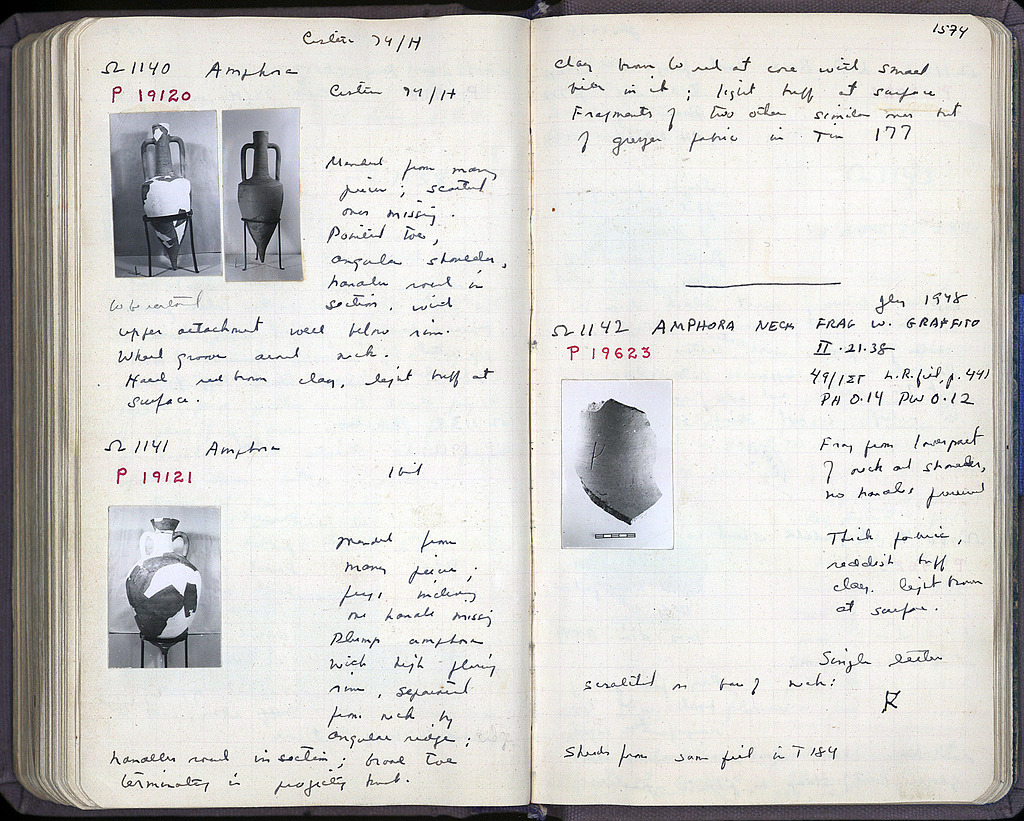 Cistern 74/H
Ω 1140 Amphora
P 19120
Cistern 74/H
Mended from many
pieces; scattered
ones missing.
Pointed toe,
angular shoulder,
handles round in
section, with
to be restored
upper attachment well below rim.
Wheel groove around neck.
Hard red brown clay, light buff at
surface.
Ω 1141 Amphora
P 19121
Ibid
Mended from
many pieces;
frags, including
one handle missing
Plump amphora
with high flaring
rim, separated
from neck by
angular ridge;
handles round in section; broad toe
terminating in projecting knob.
1574
clay brown to red at core with small
bits in it; light buff at surface
Fragments of two other similar ones but
of greyer fabric in Tin 177
July 1948
Ω 1142 AMPHORA NECK FRAG W. GRAFFITO
P 19623
II.21.38
49/ΙΣΤ L.R. fill, p. 441
PH 0.14 PW 0.12
Frag from lower part
of neck and shoulder,
no handles preserved
Thick fabric,
reddish buff
clay, light brown
at surface.
Single letter
scratched on base of neck:
Sherds from same fill in T 184